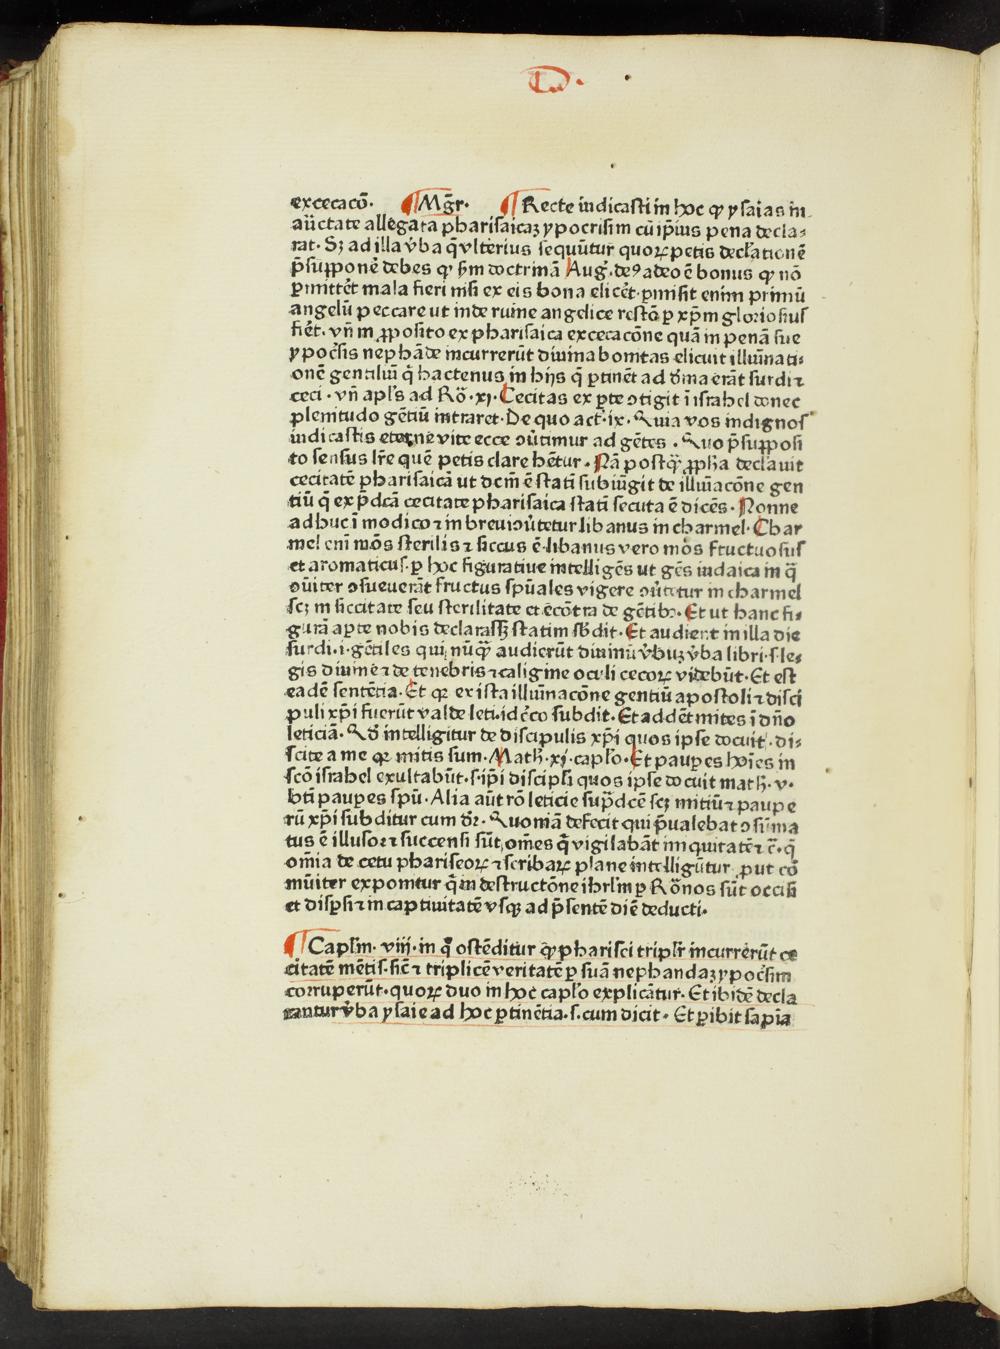 D.
excecacō. ¶ Mḡr. ¶ Recte iudicasti in hoc ꝙ ysaias in
aūctate allegata pharisaicaꝫ ypocrisim cū ip̄ius pena decla⸗
rat. Sꝫ ad illa v̓ba q̄ vlterius sequūtur quoꝝ petis declr̄ationē
p̄supponē debes ꝙ s̄m doctrinā Aug̓. deꝰ adeo ē bonus ꝙ nō
ꝑmittēt mala fieri nisi ex eis bona elicēt. ꝑmisit enim primū
angelū peccare ut inde ruine angelice restō ꝑ xp̄m gloriosius
fiēt. vn̄ in ꝓposito ex pharisaica excecacōne quā in penā sue
ypoc̓sis nephāde incurrerūt diuina bonitas elicuit illūinati⸗
onē gentiliū q̄ hactenus in hijs q̄ ꝑtinēt ad d̓ina erāt surdi ⁊
ceci. vn̄ apl̄s ad Rō. xj. Cecitas ex ꝑte ↄtigit ī israhel donec
plenitudo gētiū intraret. De quo act̓. ix. Quia vos indignos
iudicastis eterne vite ecce ↄu̓timur ad gētes. Quo p̄supposi
to sensus lr̄e quē petis clare hētur. Nā postq̄ꝫ ꝓph̄a declauit
cecitatē pharisaicā ut dcm̄ ē statī subiūgit de illūiacōne gen
tiū q̄ ex p̄dcā cecitate pharisaica statī secuta ē dicēs. Nonne
adhuc ī modico ⁊ in breui ↄu̓tetur libanus in charmel. Char
mel enī mōs sterilis ⁊ siccus ē. libanus vero mōs fructuosus
et aromaticus. ꝑ hoc figuratiue intelligēs ut gēs iudaica in q̄
ↄu̓iter ↄsueuerāt fructus spūales vigere ↄu̓tetur in charmel
scꝫ in siccitate seu sterilitate et ecōtra de gētibꝫ. Et ut hanc fi⸗
gurā aꝑte nobis declarassꝫ statim sb̄dit. Et audient in illa die
surdi .i. gētiles qui nūq̄ꝫ audierūt diuinū v̓buꝫ v̓ba libri .s. le⸗
gis diuine ⁊ de tenebris ⁊ caligine oculi cecoꝝ videbūt. Et est
eadē sentētia. Et qꝛ ex ista illūiacōne gentiū apostoli ⁊ disci
puli xp̄i fuerūt valde leti. idc̓co subdit. Et addēt mites ī dn̄o
leticiā. Qd̓ intelligitur de discipulis xp̄i quos ipse docuit. di⸗
scite a me qꝛ mitis sum. Math̓. xj. capl̓o. Et pauꝑes hoīes in
scō israhel exultabūt .s. ip̄i discipl̓i quos ipse docuit math̓. v.
bt̄i pauꝑes spū. Alia aūt rō leticie sup̄dcē scꝫ mitiū ⁊ paupe
rū xp̄i subditur cum dr̄. Quoniā defecit qui p̄ualebat ↄsūma
tus ē illusor ⁊ succensi sūt om̄es q̄ vigilabāt iniquitatē ⁊c̄. q̄
om̄ia de cetu phariseoꝝ ⁊ scribaꝝ plane intelligūtur ꝓut cō
mūiter exponitur q̄ in destructōne ihrl̄m ꝑ Rōnos sūt occisi
et disꝑsi ⁊ in captiuitatē vsqꝫ ad p̄sentē diē deducti.
¶ Capl̄m. viij. in q̄ ostēditur ꝙ pharisei triplr̄ incurrerūt ce
citatē mētis. sic̄ ⁊ triplicē veritatē ꝑ suā nephandaꝫ ypoc̓sim
corruperūt. quoꝝ duo in hoc capl̓o explicātur. Et ibidē decla
rantur v̓ba ysaie ad hoc ꝑtinētia .s. cum dicit. Et ꝑibit sapīa